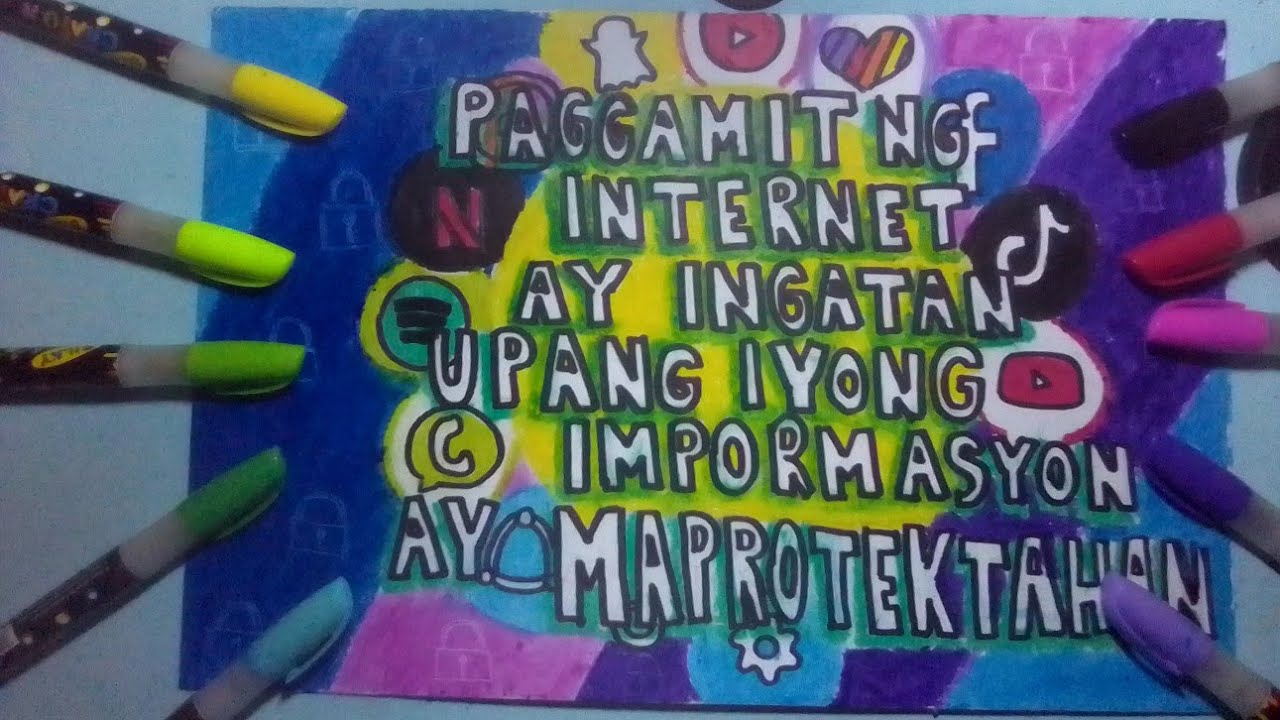 PAGGAMIT NG
INTERNET
AY INGATAN
UPANG IYONG
IMPORMASYON
AY MAPROTEKTAHAN